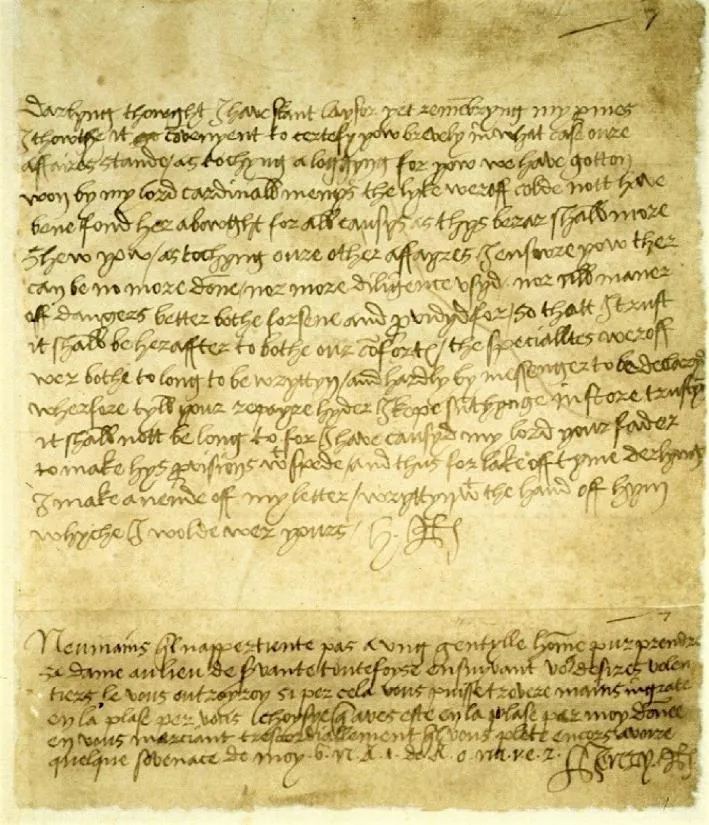 7
Darlyng thowght I have skant laysor yet remēbryng my pmes
I thowthe it covenyent to certefy yow brevely in what case oure
affaires stande, as tochyng a loggyng for yow we have gotton
won by my lord cardinall menys the lyke weroff colde nott have
bene fond her abowght for all causys as thys berar shall more
shew yow, as tochyng oure other affayres I ensure yow ther
can be no more done, nor more diligence usyd, nor all maner
off dangers better bothe forsene and pvidyd for, so thatt I trust
it shalbe heraffter to bothe our cōfort, the specialltes weroff
wer bothe to long to be wryttyn, and hardly by messenger to be declaryd
wherfore tyll your repayre hyder I kepe sūthynge in store trustyng
it shall nott be long to for I have causyd my lord your fader
to make hys pvisions wt spede, and thus for lake off tyme derlyng
I make a nende off my letter, wryttyn wt the hand off hym
whyche I wolde wer yours H. R
7
Neumains kl nappertiente pas a ung gentylle hōme pur prendre
sa dame au lieu de svante toutefoyse ensuivant vos desires volen
tiers le vous outroyroy si per cela vous puisse trovere mains ingrate
en la plase per vous choysye q aves este en la plase par moy dōnee
en vous merciant trescordiallement kl vous plete encors avoire
quelque sovenace de moy 6. n. A. 1. de A. o. na. ve. z.